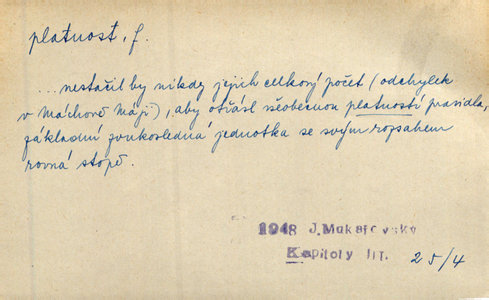 platnost, f.
...nestačil by nikdy jejich celkový počet (odchylek
v Máchově Máji), aby otřásl všeobecnou platností pravidla,
základní zvukosledná jednotka se svým rozsahem
rovná stopě.
1948 J. Mukařovský
Kapitoly III. 25/4